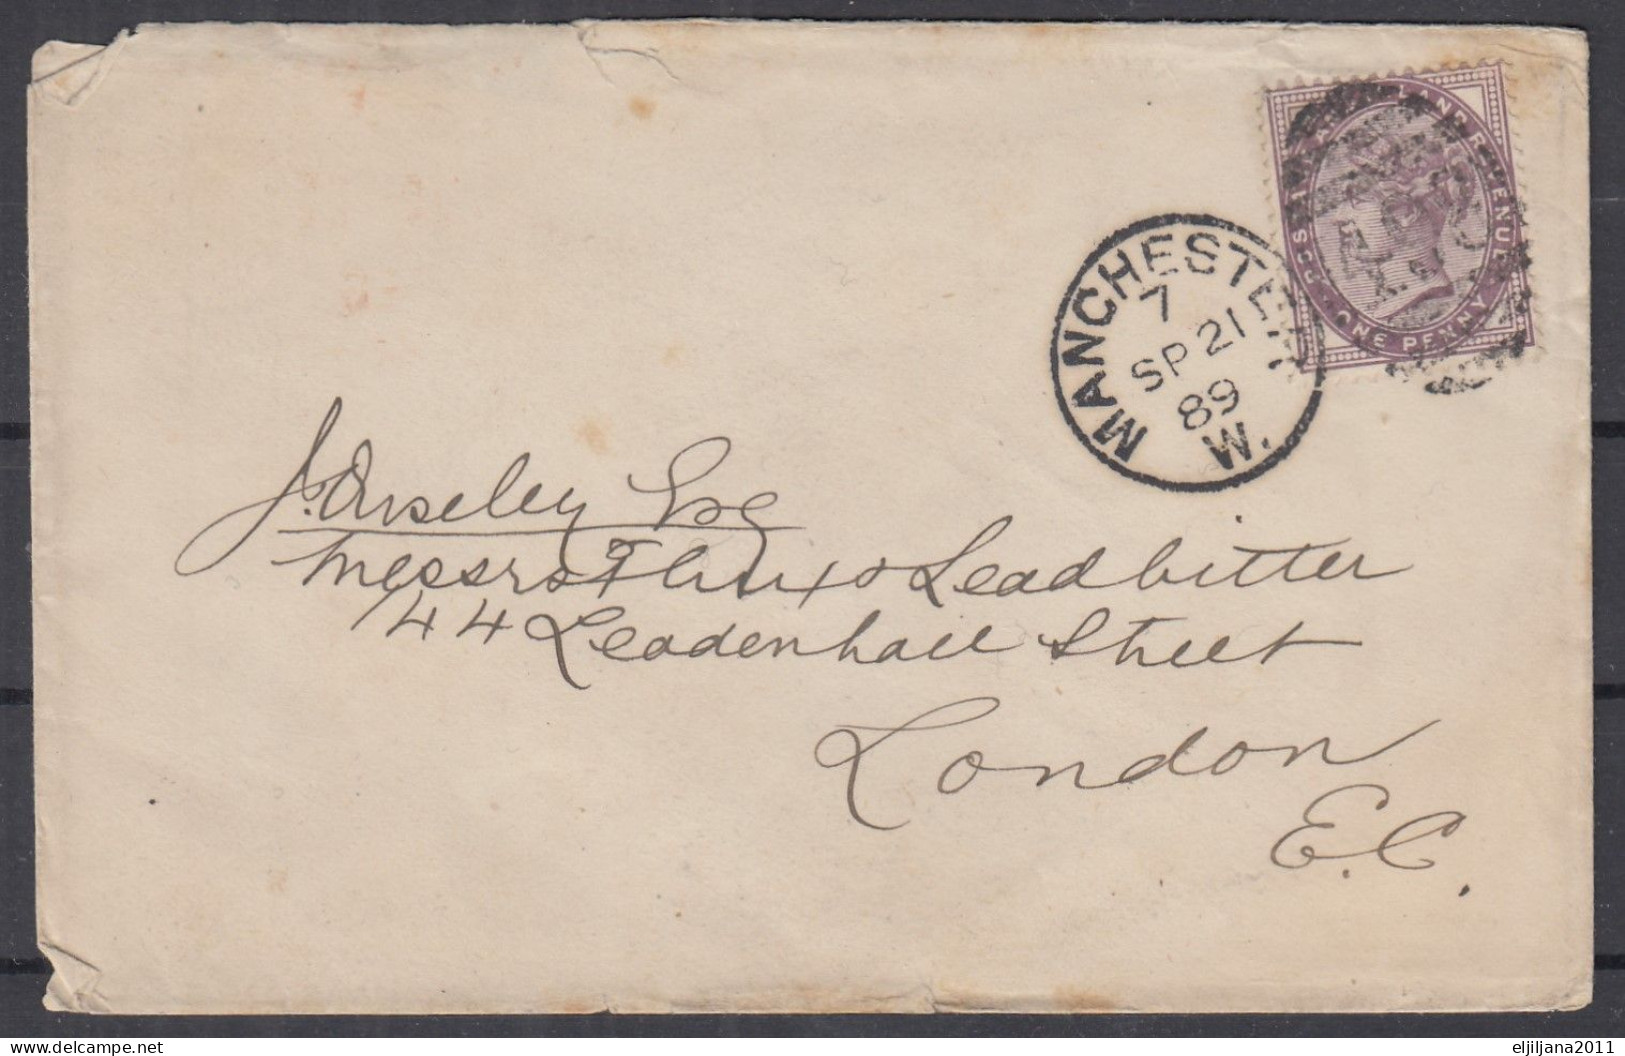 POSTAGE AND REVENUE
ONE PENNY
MANCHESTER
7
SP 21
89
W.
J. Anseley Esq
Messrs Flint & Leadbitter
144 Leadenhall Street
London
E.C.
eljiljana2011
delcampe.net